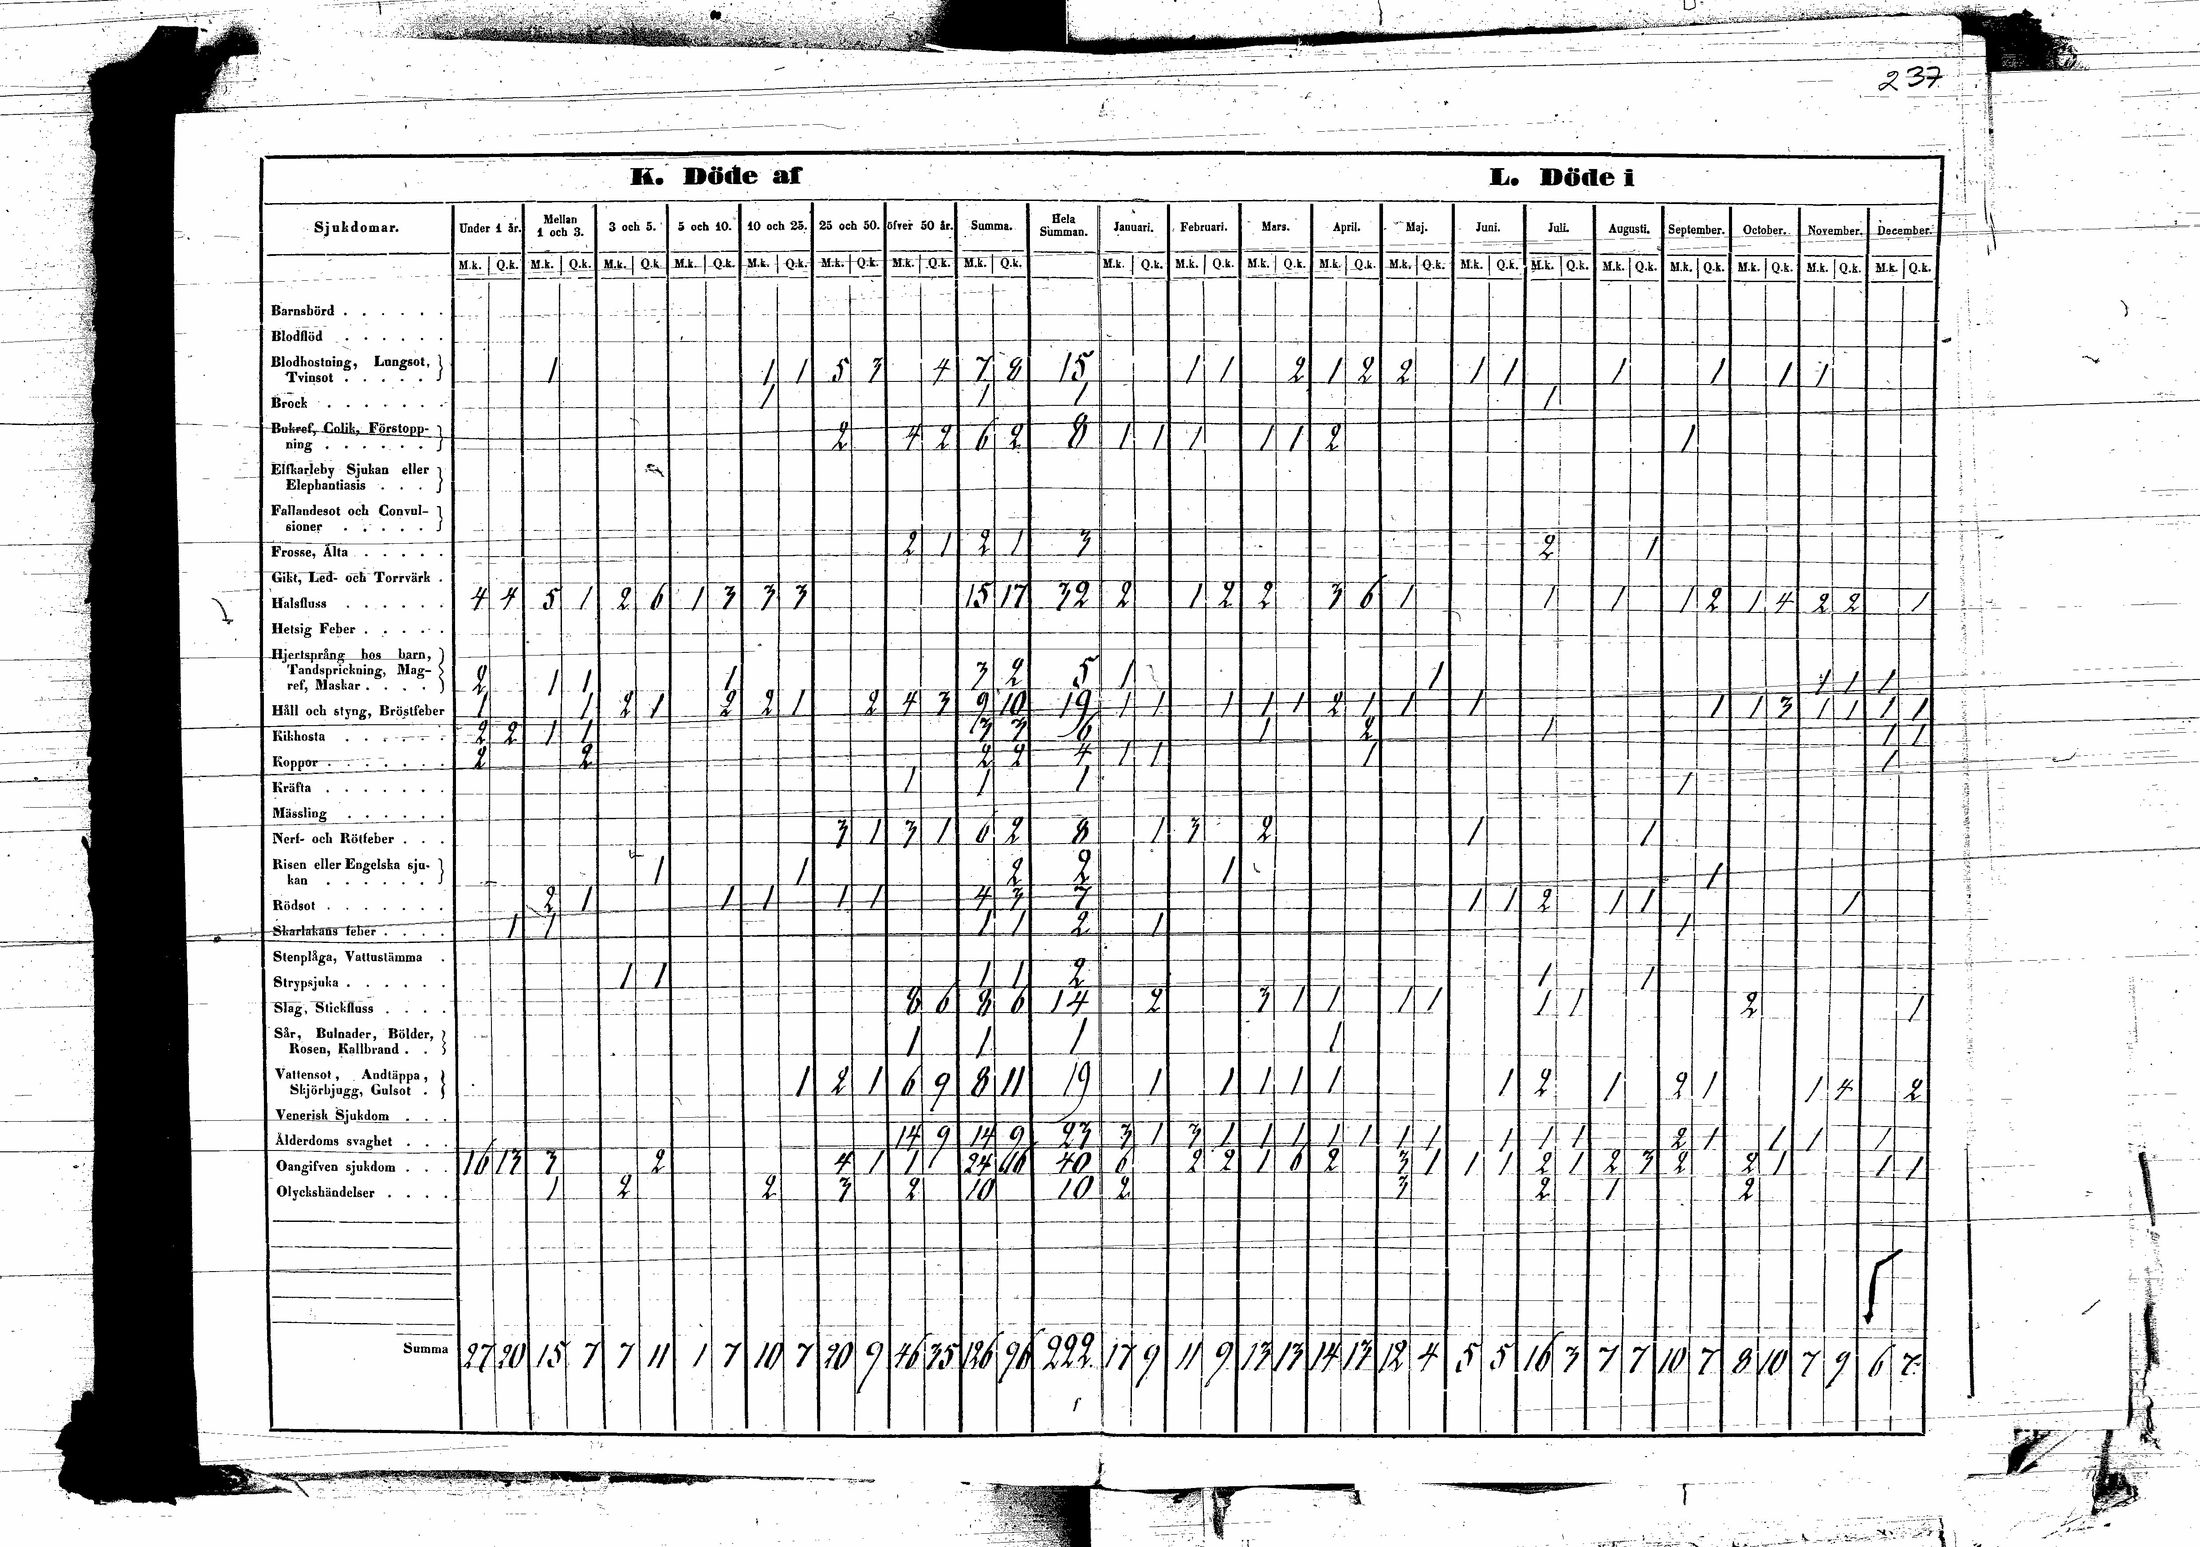 237
K. Döde af L. Döde i
Sjukdomar. Under 1 år. Mellan 1 och 3. 3 och 5. 5 och 10. 10 och 25. 25 och 50. öfver 50 år. Summa. Hela Summan. Januari. Februari. Mars. April. Maj. Juni. Juli. Augusti. September. October. November. December.
M.k. Q.k. M.k. Q.k. M.k. Q.k. M.k. Q.k. M.k. Q.k. M.k. Q.k. M.k. Q.k. M.k. Q.k. M.k. Q.k. M.k. Q.k. M.k. Q.k. M.k. Q.k. M.k. Q.k. M.k. Q.k. M.k. Q.k. M.k. Q.k. M.k. Q.k. M.k. Q.k. M.k. Q.k. M.k. Q.k.
Barnsbörd . . . . . .
Blodflöd . . . . . .
Blodhostning, Lungsot,
Tvinsot . . . . . 1 1 1 5 3 4 7 8 15 1 1 2 1 2 2 1 1 1 1 1 1
Brock . . . . . . . 1 1 1 1
Bukref, Colik, Förstopp-
ning . . . . . . 2 4 2 6 2 8 1 1 1 1 1 2 1
Elfkarleby Sjukan eller
Elephantiasis . . .
Fallandesot och Convul-
sioner . . . . .
Frosse, Älta . . . . . 2 1 2 1 3 2 1
Gikt, Led- och Torrvärk .
Halsfluss . . . . . . 4 4 5 1 2 6 1 3 3 3 15 17 32 2 1 2 2 3 6 1 1 1 1 2 1 4 2 2 1
Hetsig Feber . . . . .
Hjertsprång hos barn,
Tandsprickning, Mag-
ref, Maskar . . . . 2 1 1 1 3 2 5 1 1 1 1 1
Håll och styng, Bröstfeber 1 1 2 1 2 2 1 2 4 3 9 10 19 1 1 1 1 1 2 1 1 1 1 1 3 1 1 1 1
Kikhosta . . . . . . 2 2 1 1 3 3 6 1 2 1 1 1
Koppor . . . . . . . 2 2 2 2 4 1 1 1 1
Kräfta . . . . . . . 1 1 1 1
Mässling . . . . . .
Nerf- och Rötfeber . . . 3 1 3 1 6 2 8 1 3 2 1 1
Risen eller Engelska sju-
kan . . . . . . 1 1 2 2 1 1
Rödsot . . . . . . . 2 1 1 1 1 1 4 3 7 1 1 2 1 1 1
Skarlakans feber . . . . 1 1 1 1 2 1 1
Stenplåga, Vattustämma .
Strypsjuka . . . . . . 1 1 1 1 2 1 1
Slag, Stickfluss . . . . 8 6 8 6 14 2 3 1 1 1 1 1 1 2 1
Sår, Bulnader, Bölder,
Rosen, Kallbrand . . 1 1 1 1
Vattensot, Andtäppa,
Skjörbjugg, Gulsot . 1 2 1 6 9 8 11 19 1 1 1 1 1 1 2 1 2 1 1 4 2
Venerisk Sjukdom . . .
Ålderdoms svaghet . . . 14 9 14 9 23 3 1 3 1 1 1 1 1 1 1 1 1 1 2 1 1 1 1
Oangifven sjukdom . . . 16 13 3 2 4 1 1 24 16 40 6 2 2 1 6 2 3 1 1 1 2 1 2 3 2 2 1 1 1
Olyckshändelser . . . . 1 2 2 3 2 10 10 2 3 2 1 2
Summa 27 20 15 7 7 11 1 7 10 7 20 9 46 35 126 96 222 17 9 11 9 13 13 14 13 12 4 5 5 16 3 7 7 10 7 8 10 7 9 6 7